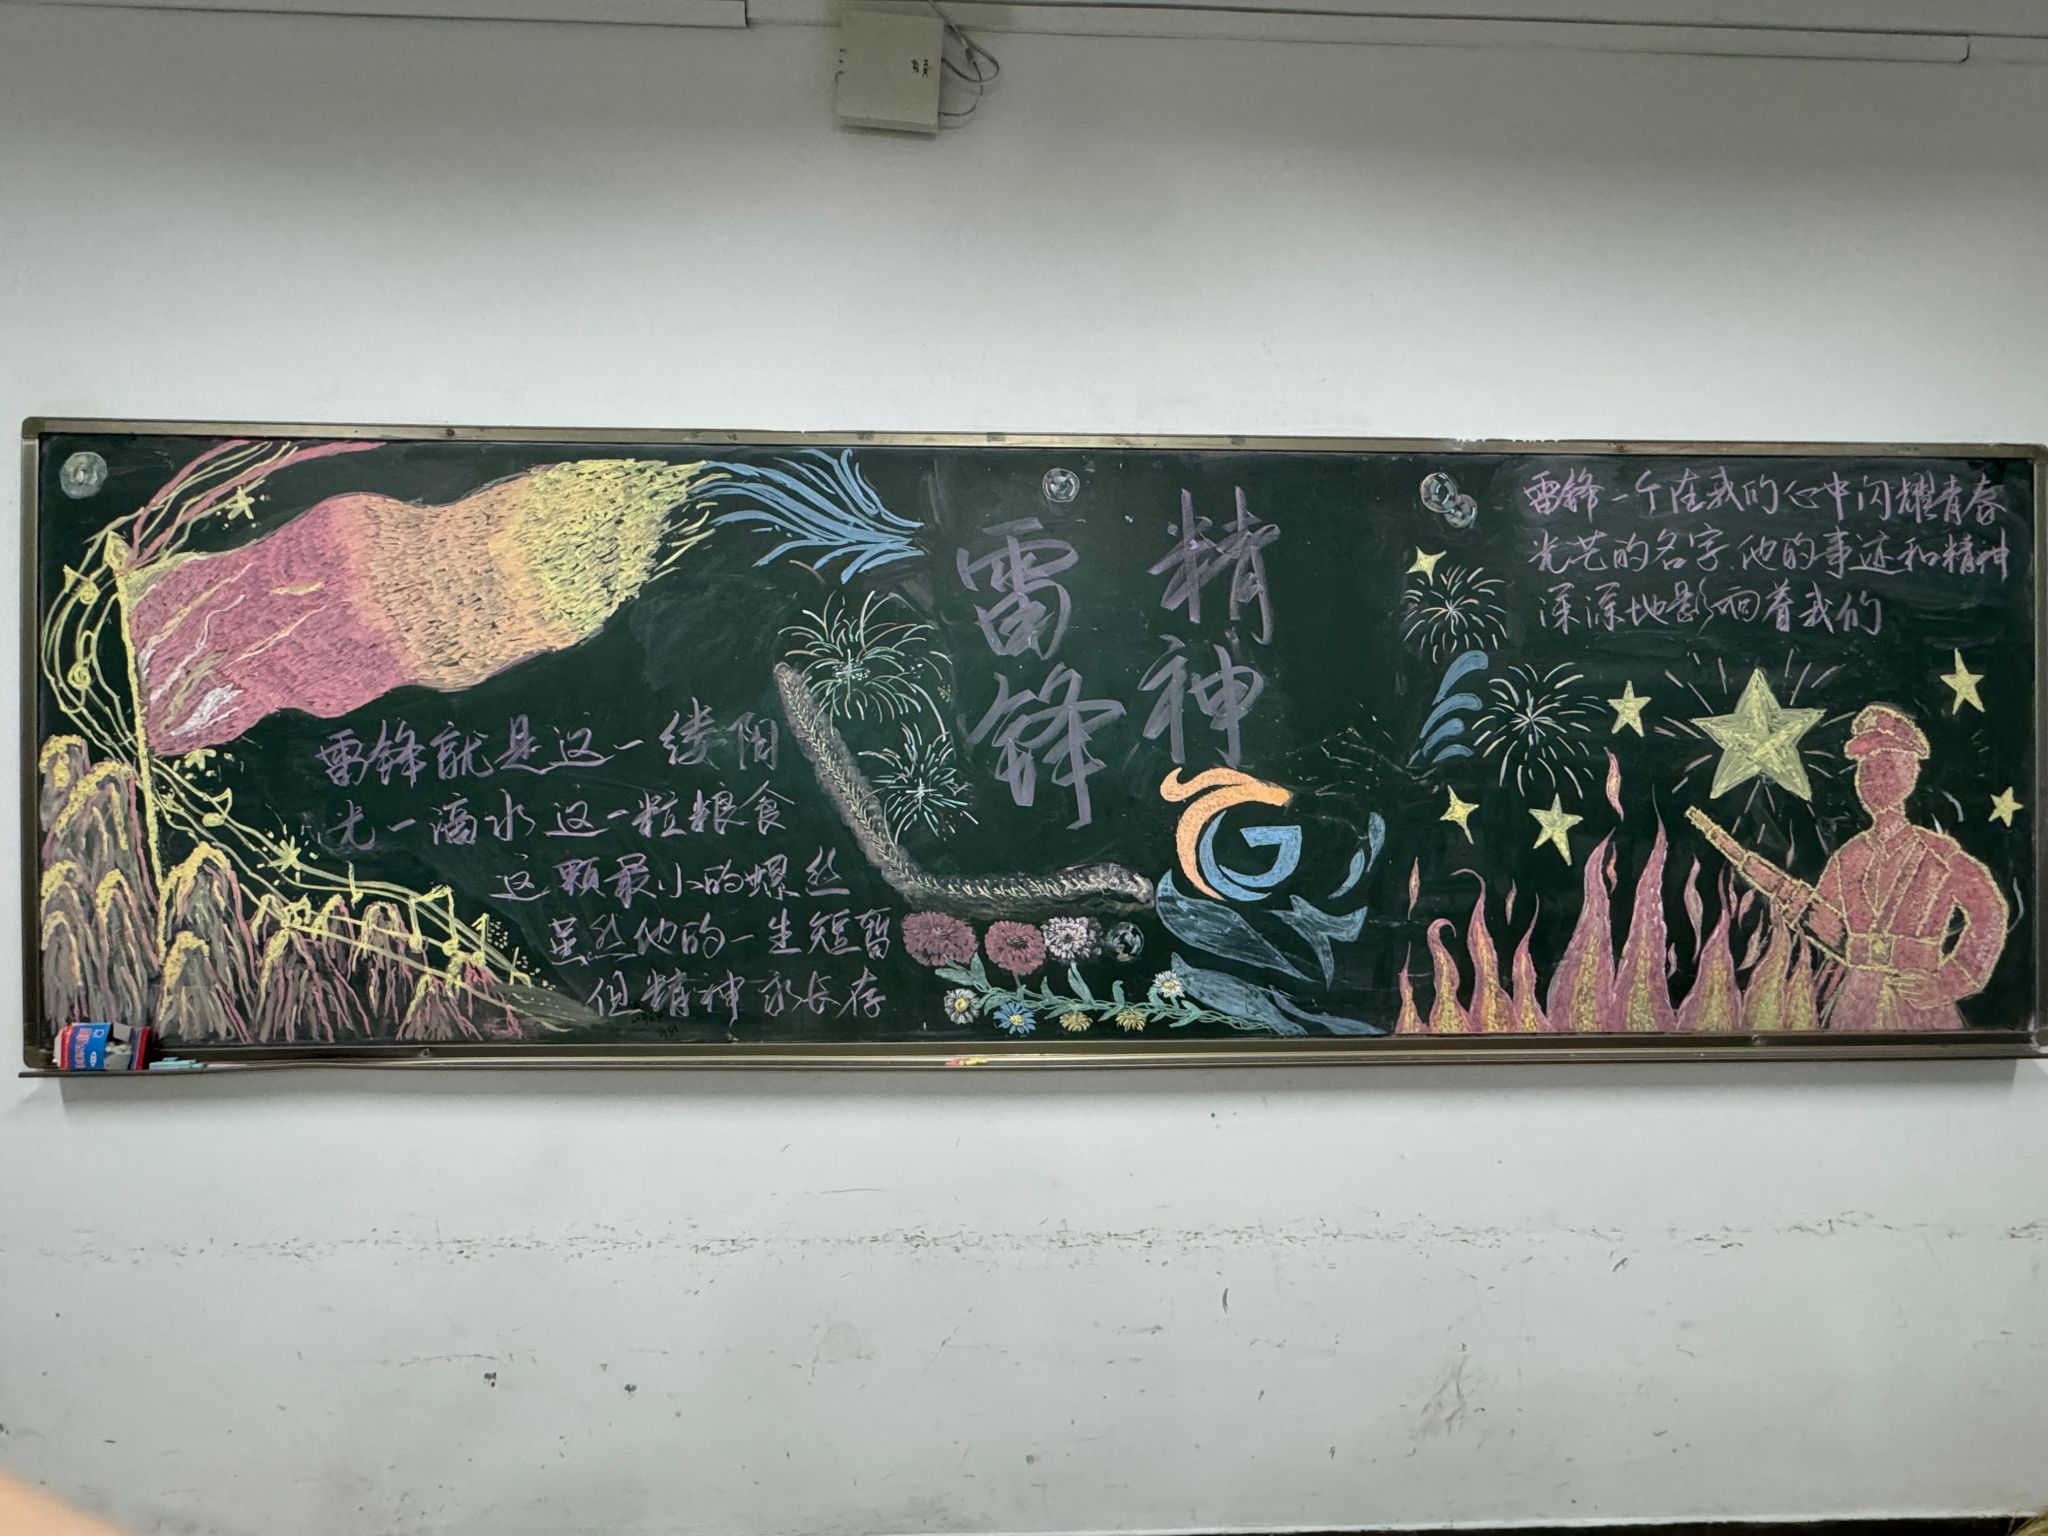 雷锋
精神
雷锋就是这一缕阳
光一滴水这一粒粮食
这颗最小的螺丝
虽然他的一生短暂
但精神永长存
雷锋一个在我的心中闪耀青春
光芒的名字.他的事迹和精神
深深地影响着我们
G